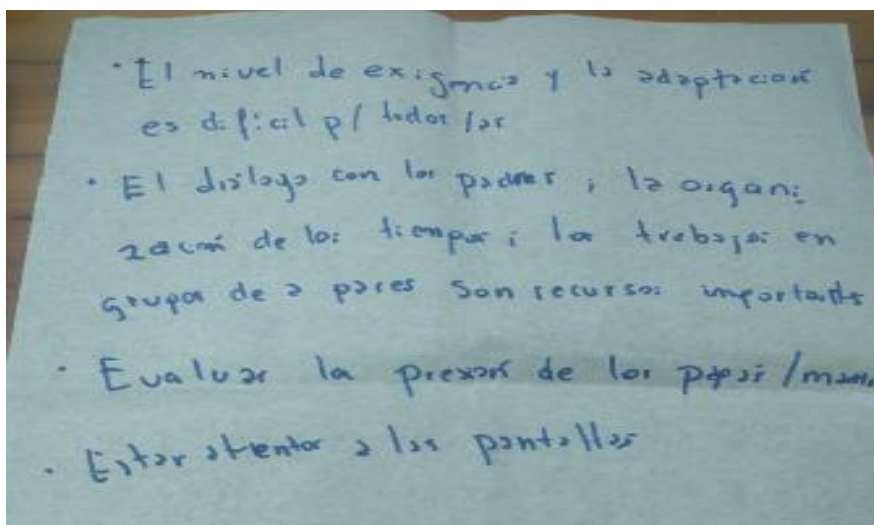 · El nivel de exigencia y la adaptación
es dificil p/ todos/as
· El dialogo con los padres ; la organi
zación de los tiempos ; los trabajos en
grupos de a pares son recursos importantes
· Evaluar la presión de los papás /
· Estar atentos a las pantallas